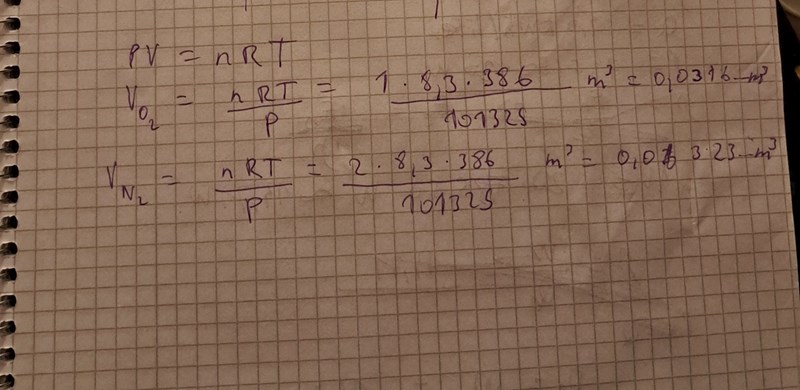 PV = nRT
V_O₂ = nRT/P = 1 · 8,3 · 386/101325 m³ = 0,0316...m³
V_N₂ = nRT/P = 2 · 8,3 · 386/101325 m³ = 0,06323...m³